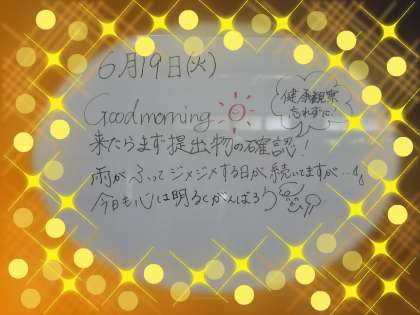 6月19日(火)
Good morning
健康観察
忘れずに!
来たらまず提出物の確認!
雨がふってジメジメする日が、続いてますが…
今日も心は明るくがんばろう